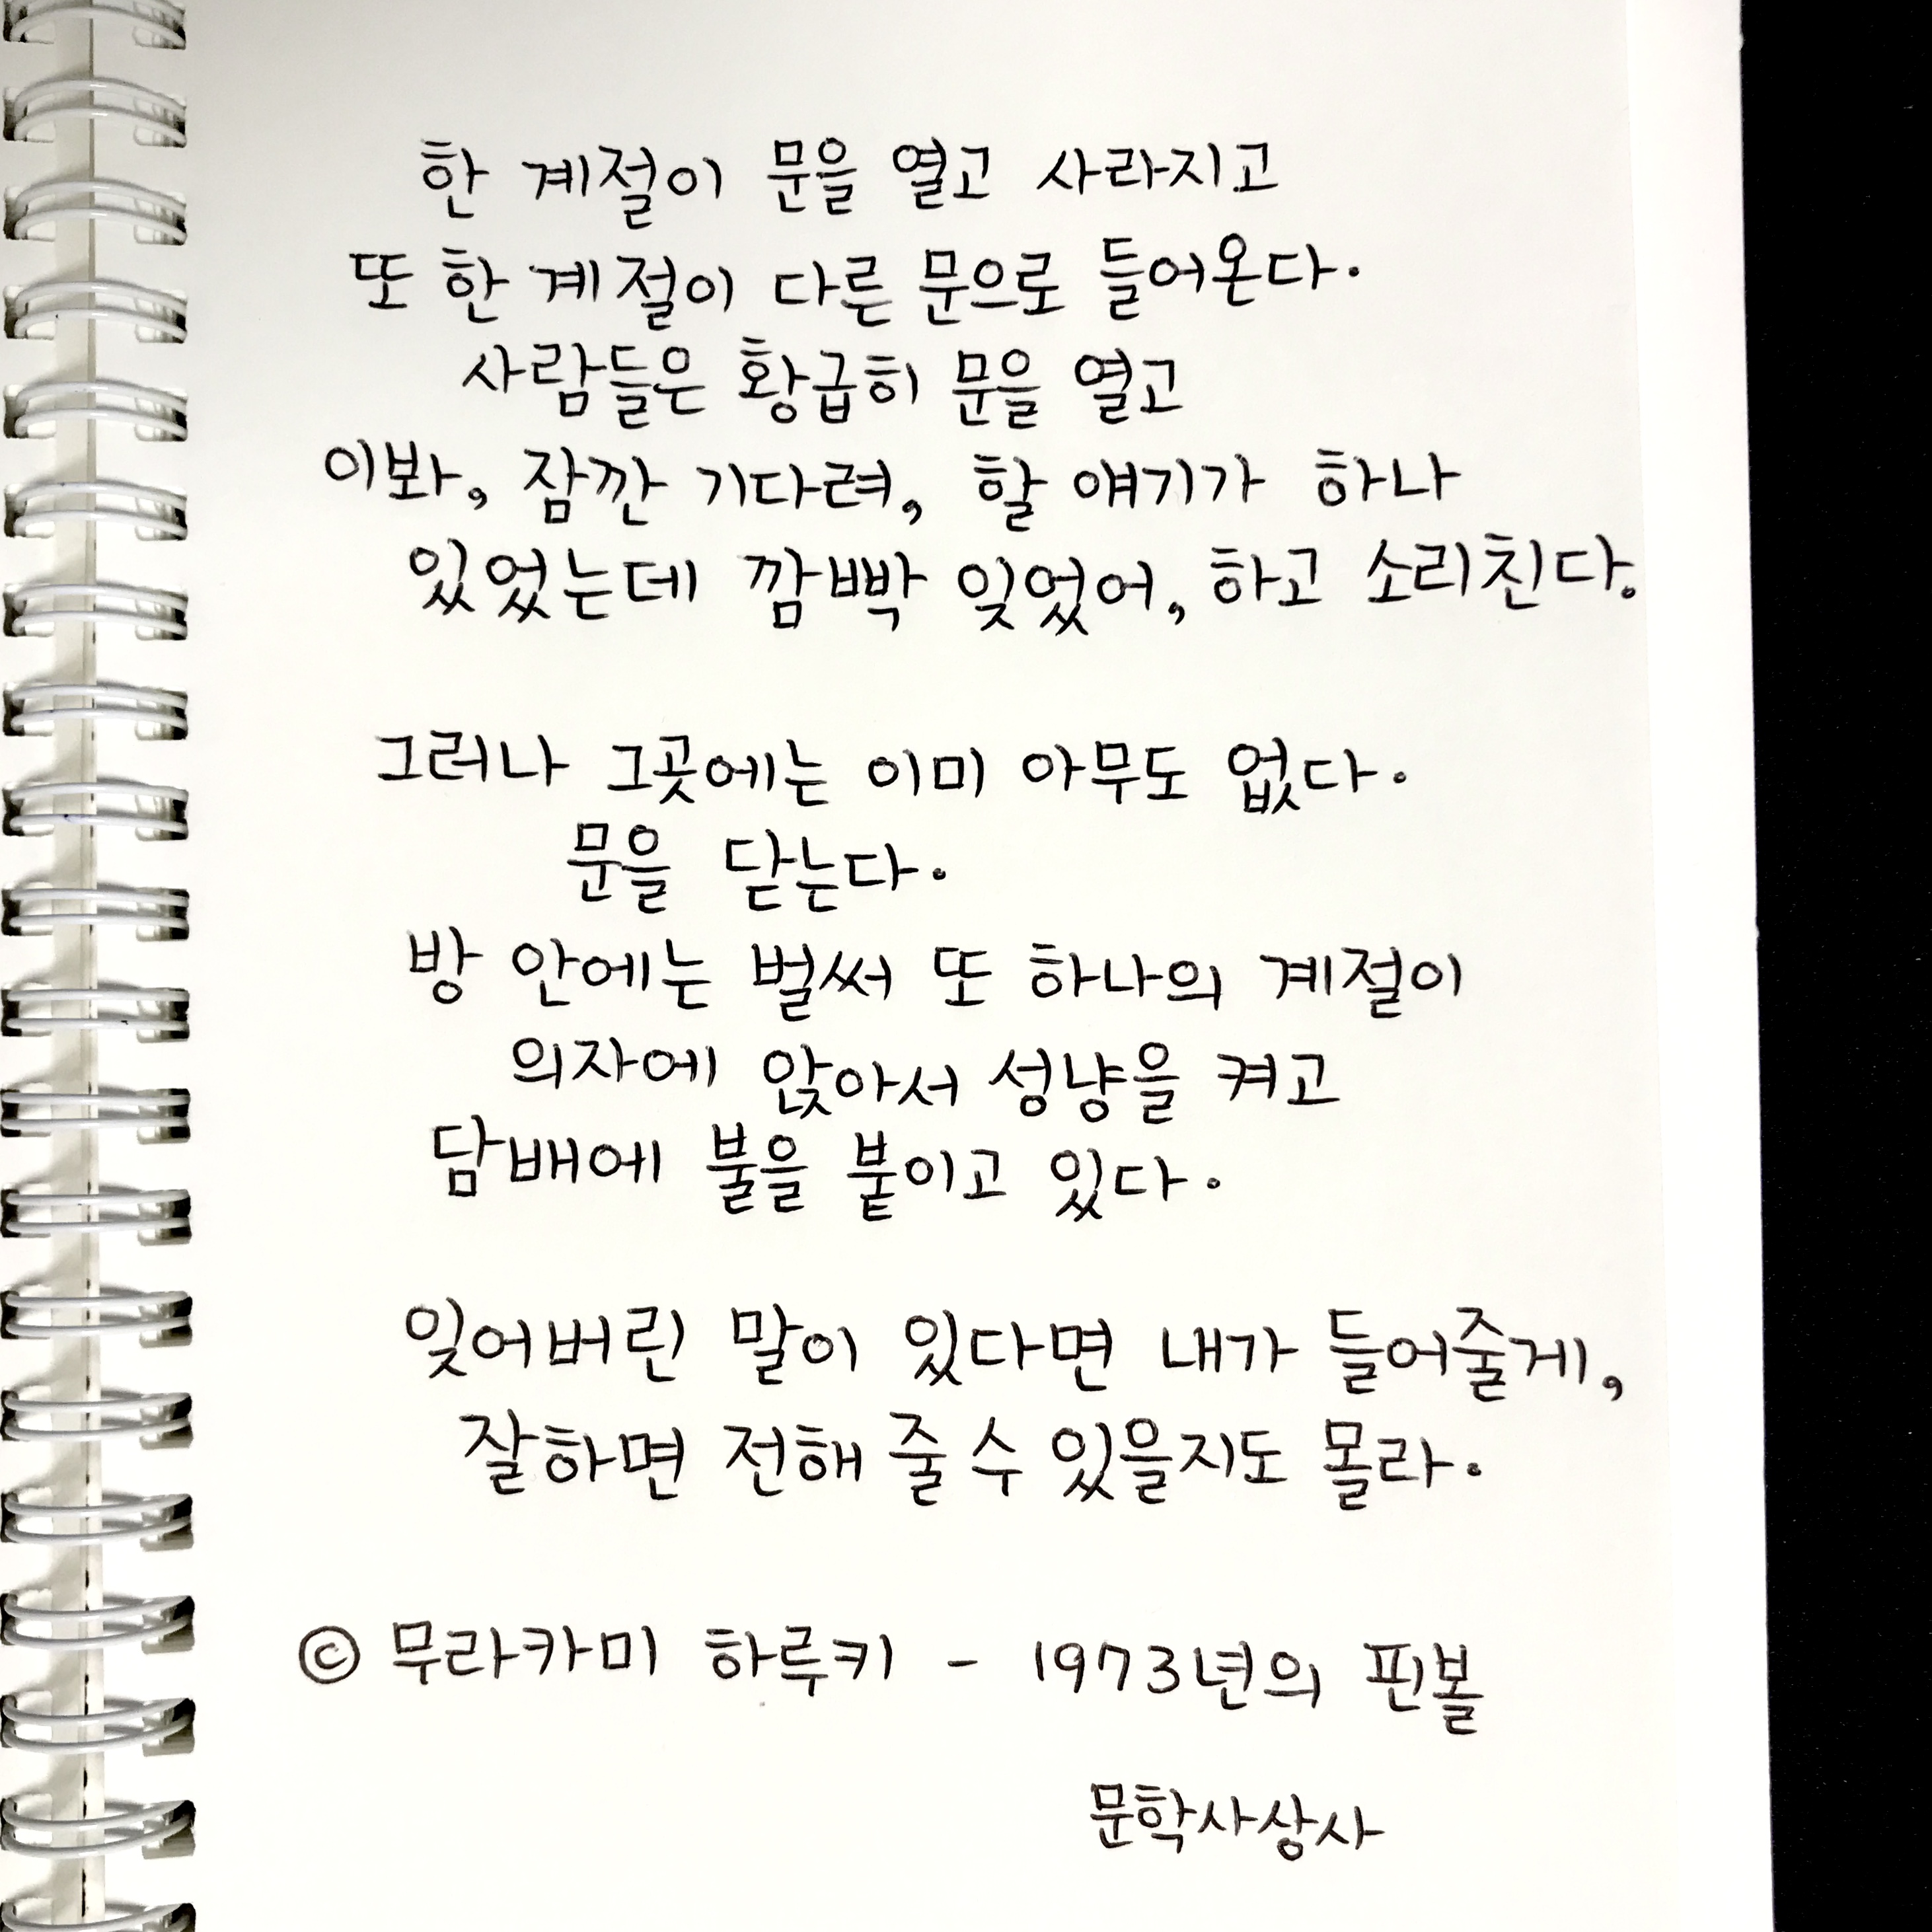 한 계절이 문을 열고 사라지고
또 한 계절이 다른 문으로 들어온다.
사람들은 황급히 문을 열고
이봐, 잠깐 기다려, 할 얘기가 하나
있었는데 깜빡 잊었어, 하고 소리친다.
그러나 그곳에는 이미 아무도 없다.
문을 닫는다.
방 안에는 벌써 또 하나의 계절이
의자에 앉아서 성냥을 켜고
담배에 불을 붙이고 있다.
잊어버린 말이 있다면 내가 들어줄게,
잘하면 전해 줄 수 있을지도 몰라.
© 무라카미 하루키 - 1973년의 핀볼
문학사상사